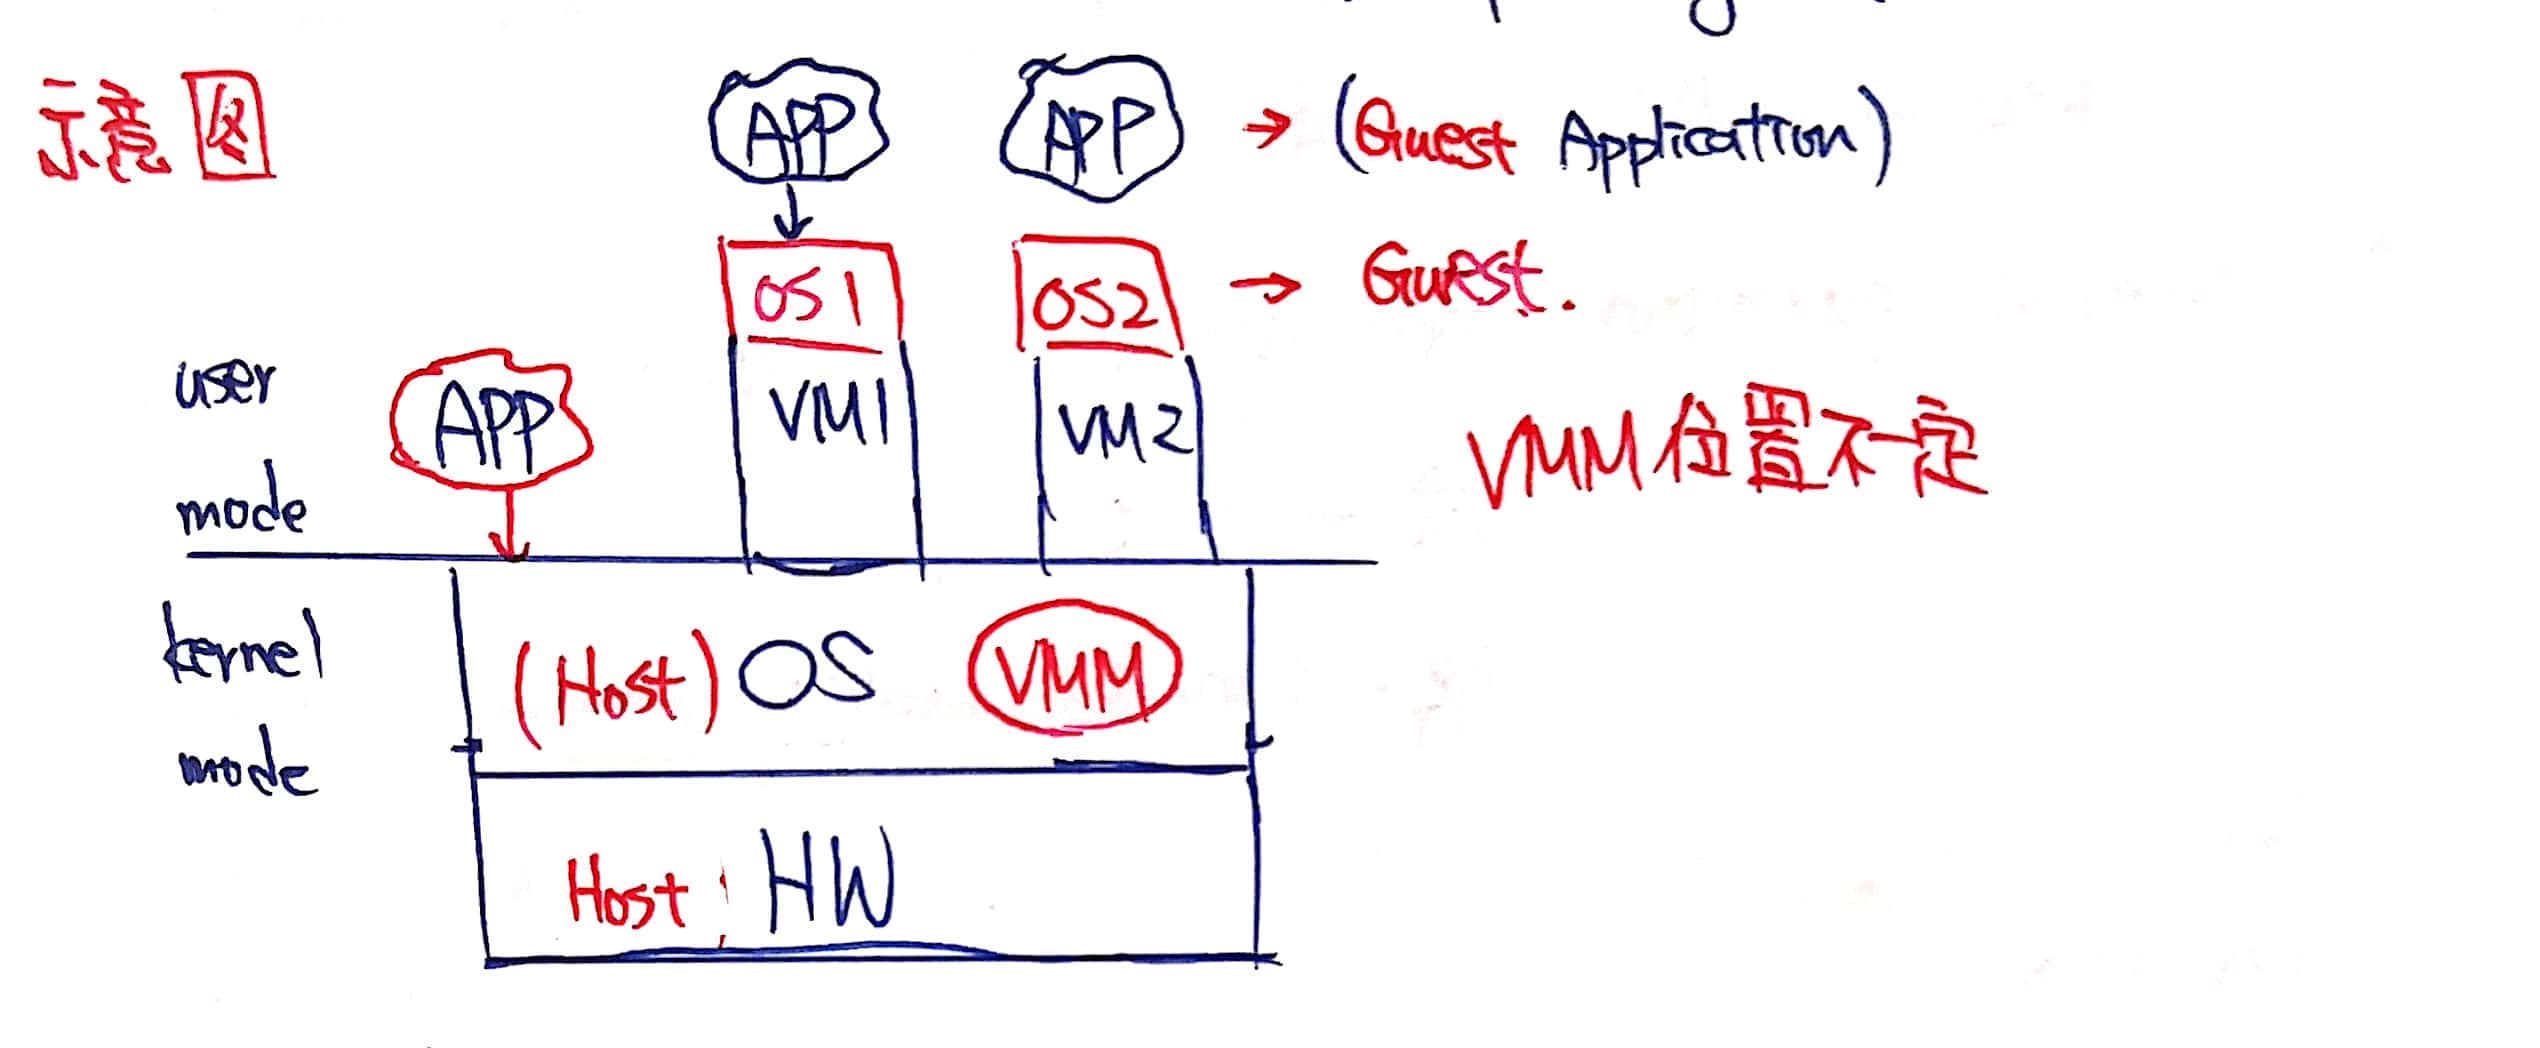 示意图
APP APP → (Guest Application)
OS1 OS2 → Guest.
user
mode
APP
VM1 VM2
VMM位置不一定
kernel
mode
(Host) OS VMM
Host HW